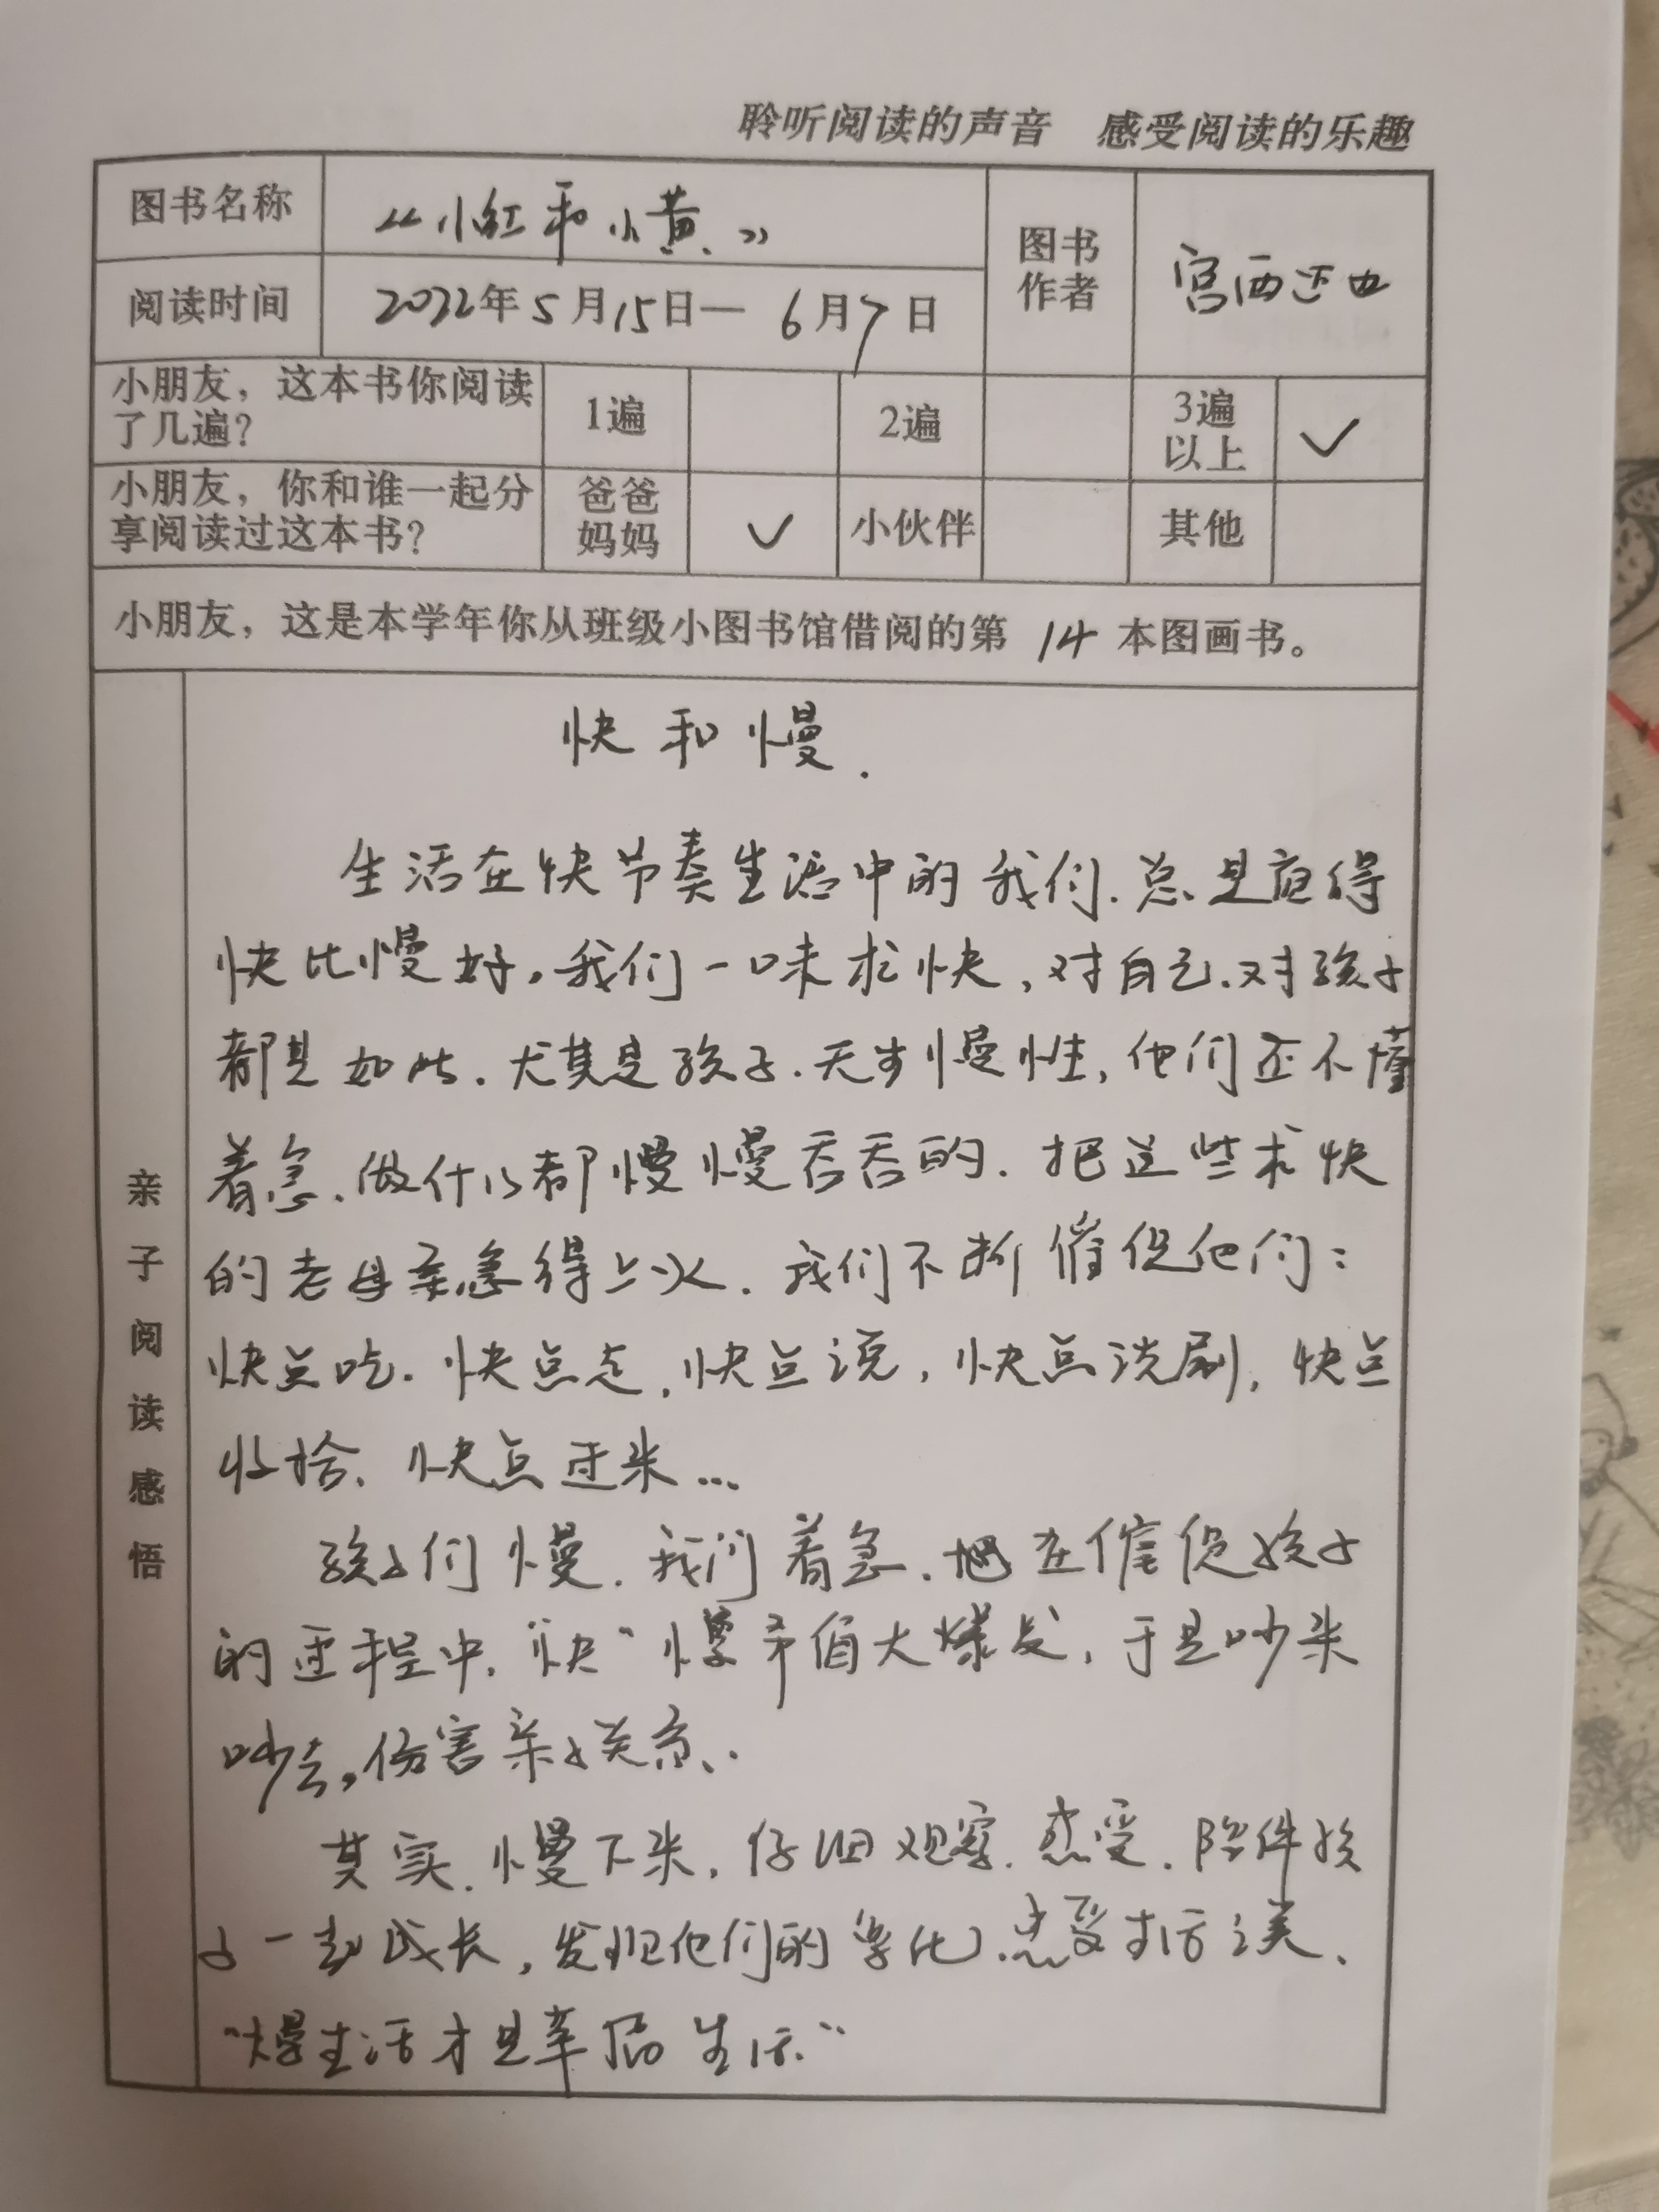 聆听阅读的声音 感受阅读的乐趣
图书名称
《小红和小黄》
图书作者
宫西达也
阅读时间
2022年5月15日— 6月7日
小朋友，这本书你阅读了几遍？
1遍
2遍
3遍以上 ✓
小朋友，你和谁一起分享阅读过这本书？
爸爸妈妈 ✓
小伙伴
其他
小朋友，这是本学年你从班级小图书馆借阅的第 14 本图画书。
亲子阅读感悟
快和慢.
生活在快节奏生活中的我们.总是觉得
快比慢好。我们一味求快，对自己.对孩子
都是如此.尤其是孩子.天生慢性，他们还不懂
着急.做什么都慢慢吞吞的.把这些求快
的老母亲急得上火.我们不断催促他们：
快点吃.快点走，快点说，快点洗刷，快点
收拾.快点过来…
孩子们慢.我们着急.在催促孩子
的过程中.“快”慢矛盾大爆发，于是吵来
吵去，伤害亲子关系.
其实.慢下来，仔细观察.感受.陪伴孩
子一起成长，发现他们的变化.感受生活之美.
“慢生活才是幸福生活.”